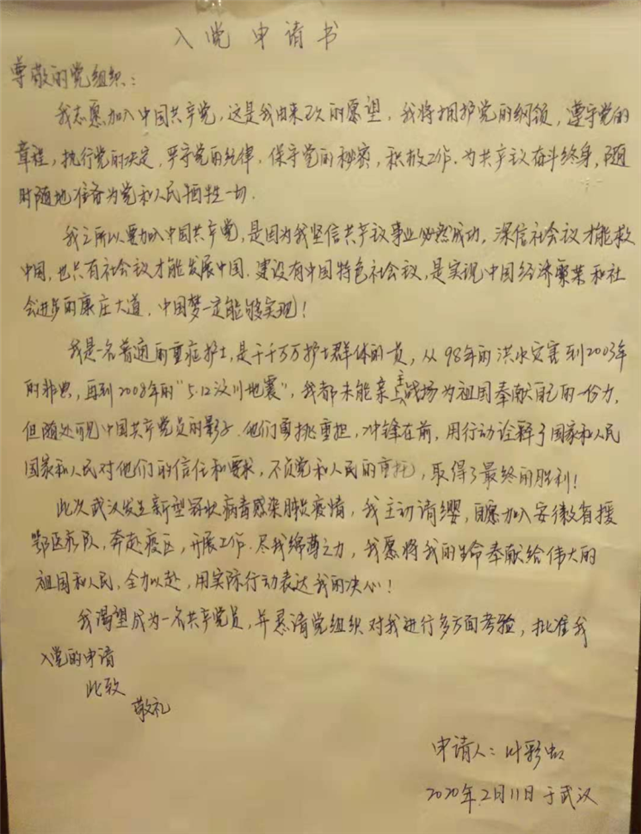 入党申请书
尊敬的党组织：
我志愿加入中国共产党，这是我由来已久的愿望，我将拥护党的纲领，遵守党的
章程，执行党的决定，严守党的纪律，保守党的秘密，积极工作，为共产主义奋斗终身，随
时随地准备为党和人民牺牲一切.
我之所以要加入中国共产党，是因为我坚信共产主义事业必然成功，深信社会主义才能救
中国，也只有社会主义才能发展中国.建设有中国特色社会主义，是实现中国经济繁荣和社
会进步的康庄大道，中国梦一定能够实现！
我是一名普通的重症护士，是千千万万护士群体的一员，从98年的洪水灾害到2003年
的非典，再到2008年的"5.12汶川地震"，我都未能亲上战场为祖国奉献自己的一份力，
但随处可见中国共产党员的影子.他们勇挑重担，冲锋在前，用行动诠释了国家和人民
国家和人民对他们的信任和要求，不负党和人民的重托，取得了最终的胜利！
此次武汉发生新型冠状病毒感染肺炎疫情，我主动请缨，自愿加入安徽省援
鄂医疗队，奔赴疫区，开展工作.尽我绵薄之力，我愿将我的生命奉献给伟大的
祖国和人民，全力以赴，用实际行动表达我的决心！
我渴望成为一名共产党员，并恳请党组织对我进行多方面考验，批准我
入党的申请
此致
敬礼
申请人：叶彩虹
2020年2月11日于武汉